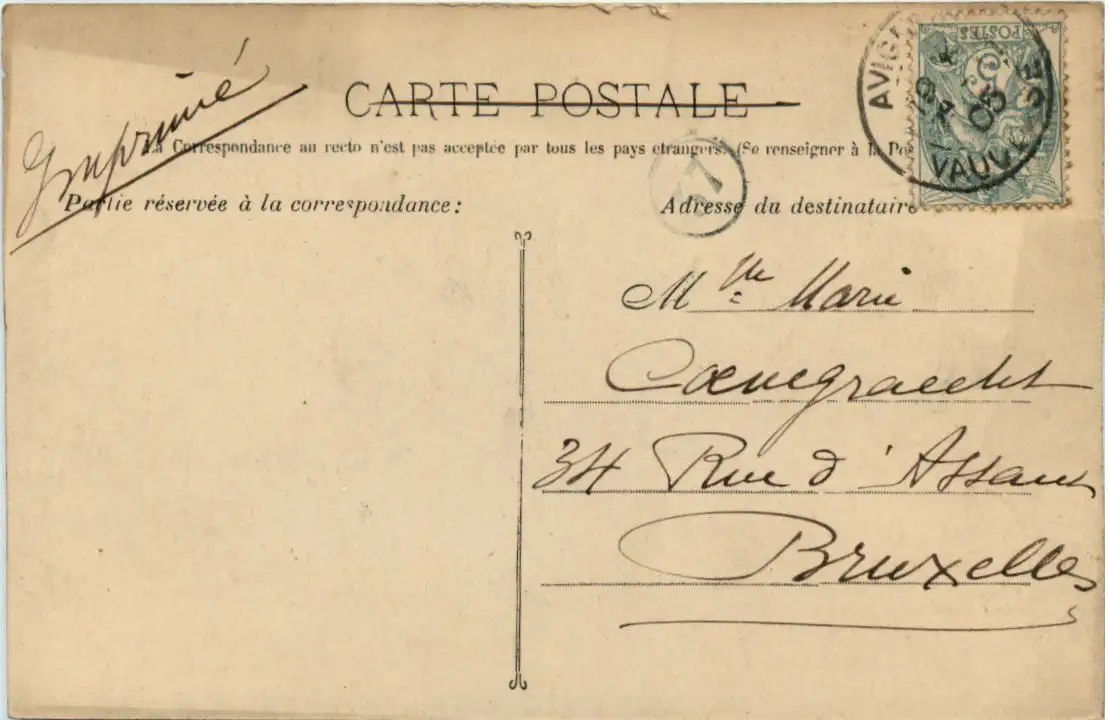 Imprimé
CARTE POSTALE
La Correspondance au recto n'est pas acceptée par tous les pays étrangers. (Se renseigner à la Po
Partie réservée à la correspondance:
Adresse du destinataire
POSTES
AVIG
VAUCL SE
05
57
Mlle Marie
Coenegracht
34 Rue d'Assaut
Bruxelles